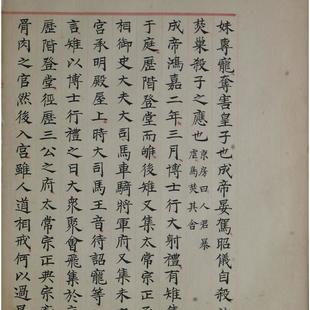 妹專寵奪害皇子也成帝晏駕昭儀自殺
焚巢殺子之應也
京房曰人君暴
虐鳥焚其舍
成帝鴻嘉二年三月博士行大射禮有雉集
于庭歷階登堂而雊後雉又集太常宗正
相御史大夫大司馬車騎將軍府又集未
宮承明殿屋上時大司馬王音待詔寵等
言雉以博士行禮之日大眾聚會飛集於
歷階登堂徑歷三公之府太常宗正典宗
骨肉之官然後入宮雖人道相戒何以過